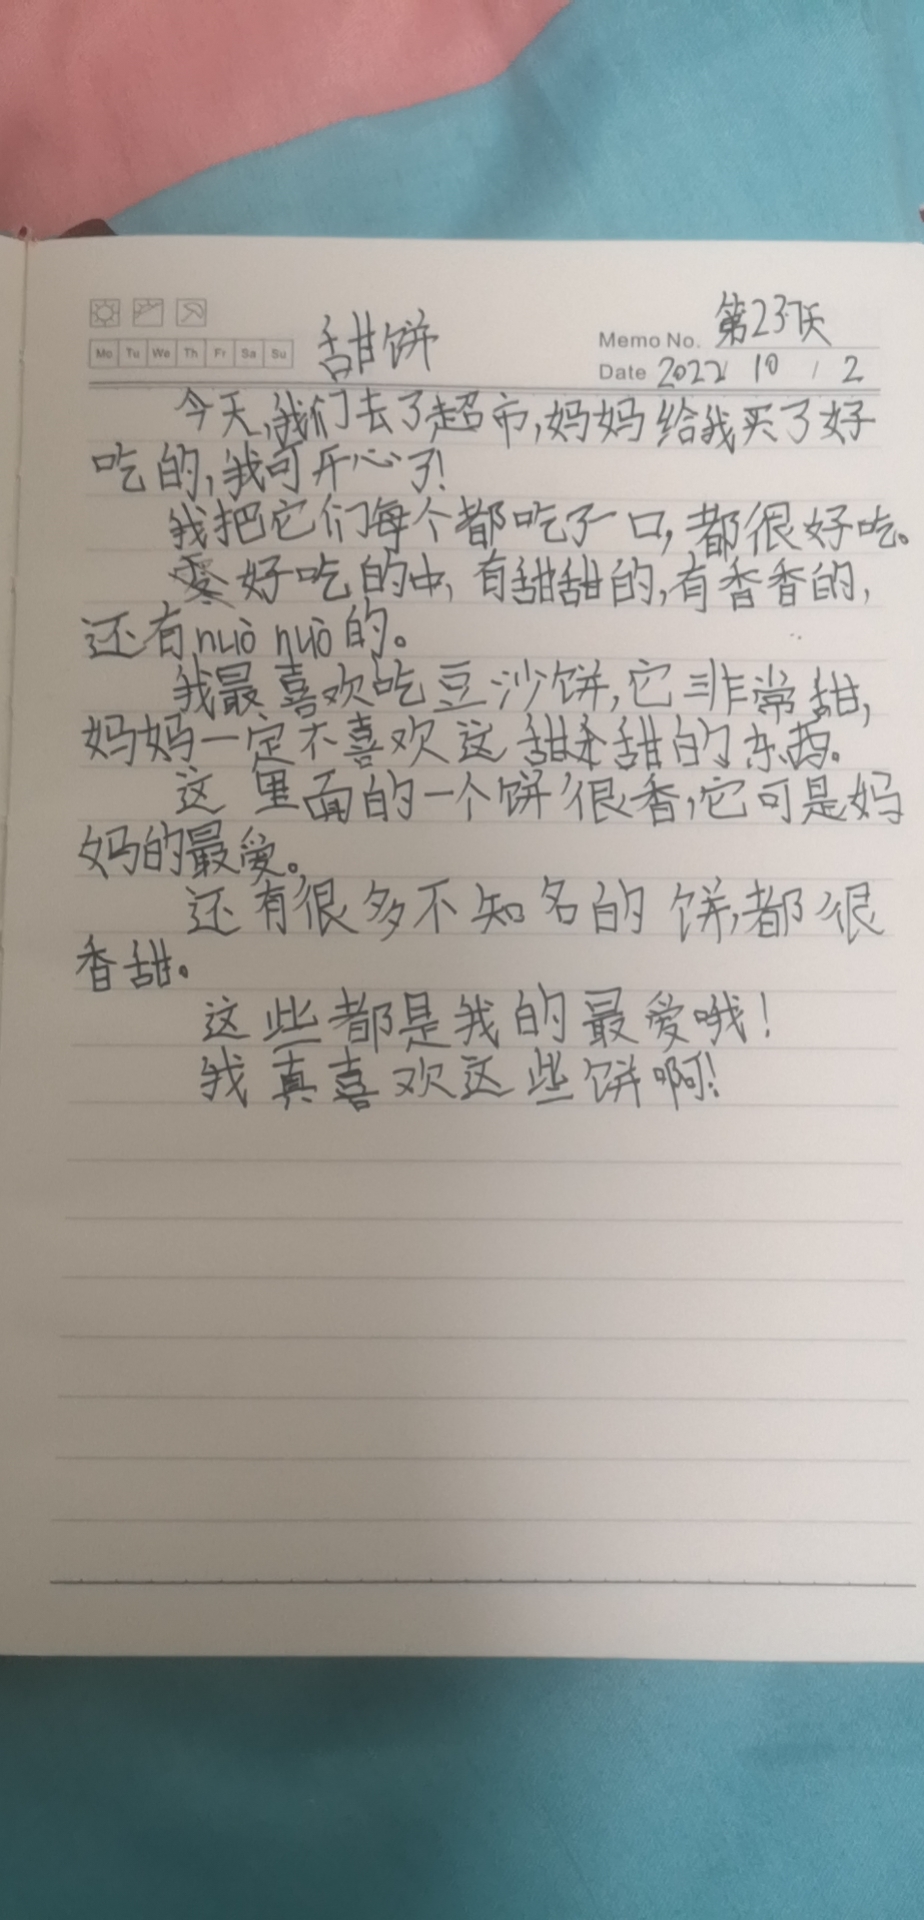 甜饼
Memo No. 第23天
Mo Tu We Th Fr Sa Su
Date 2022 10 / 2
今天,我们去了超市,妈妈给我买了好
吃的,我可开心了!
我把它们每个都吃了一口,都很好吃。
好吃的中,有甜甜的,有香香的,
还有nuò nuò的。
我最喜欢吃豆沙饼,它非常甜,
妈妈一定不喜欢这甜甜的东西。
这里面的一个饼很香,它可是妈
妈的最爱。
还有很多不知名的饼,都很
香甜。
这些都是我的最爱哦!
我真喜欢这些饼啊!